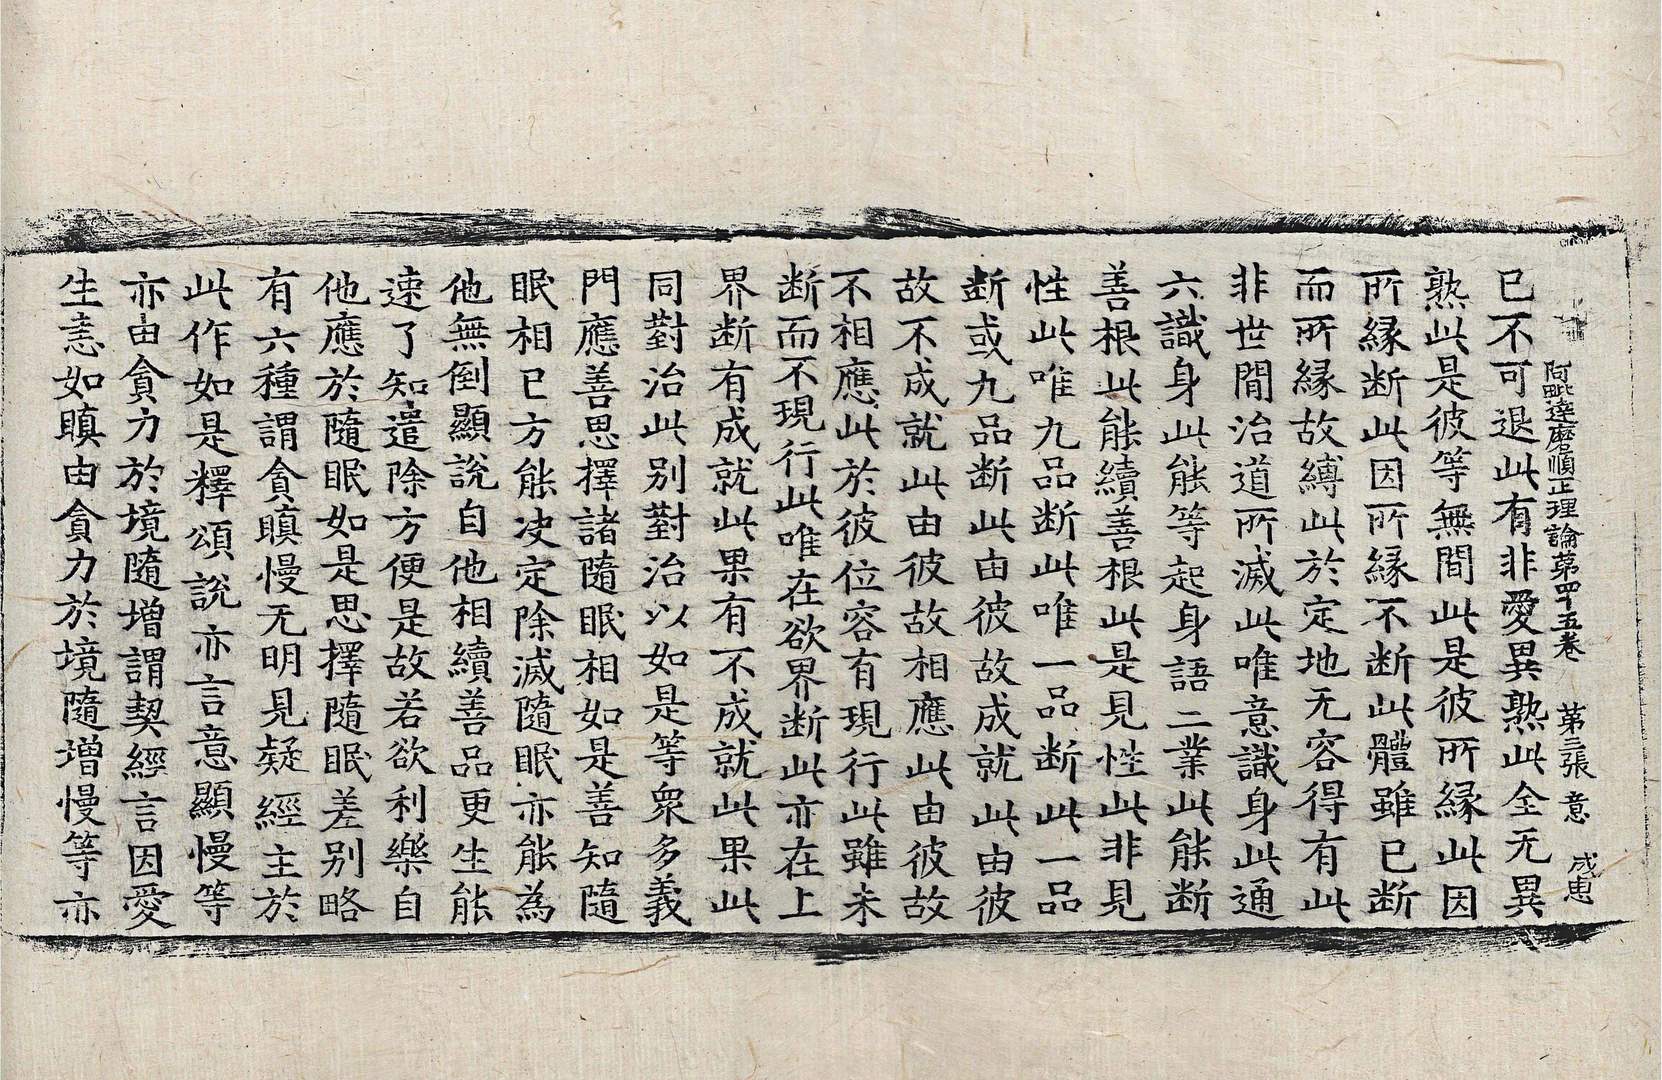 阿毗達磨順正理論第四十五卷 第三張 意 成惠
已不可退此有非愛異熟此全无異
熟此是彼等無閒此是彼所緣此因
所緣断此因所緣不断此體雖已断
而所緣故縛此於定地无容得有此
非世閒治道所滅此唯意識身此通
六識身此能等起身語二業此能断
善根此能續善根此是見性此非見
性此唯九品断此唯一品断此一品
断或九品断此由彼故成就此由彼
故不成就此由彼故相應此由彼故
不相應此於彼位容有現行此雖未
断而不現行此唯在欲界断此亦在上
界断有成就此果有不成就此果此
同對治此别對治以如是等衆多義
門應善思擇諸隨眠相如是善知隨
眠相已方能决定除滅隨眠亦能為
他無倒顯說自他相續善品更生能
速了知遣除方便是故若欲利樂自
他應於隨眠如是思擇隨眠差别略
有六種謂貪瞋慢无明見疑經主於
此作如是釋頌說亦言意顯慢等
亦由貪力於境隨增謂契經言因愛
生恚如瞋由貪力於境隨增慢等亦